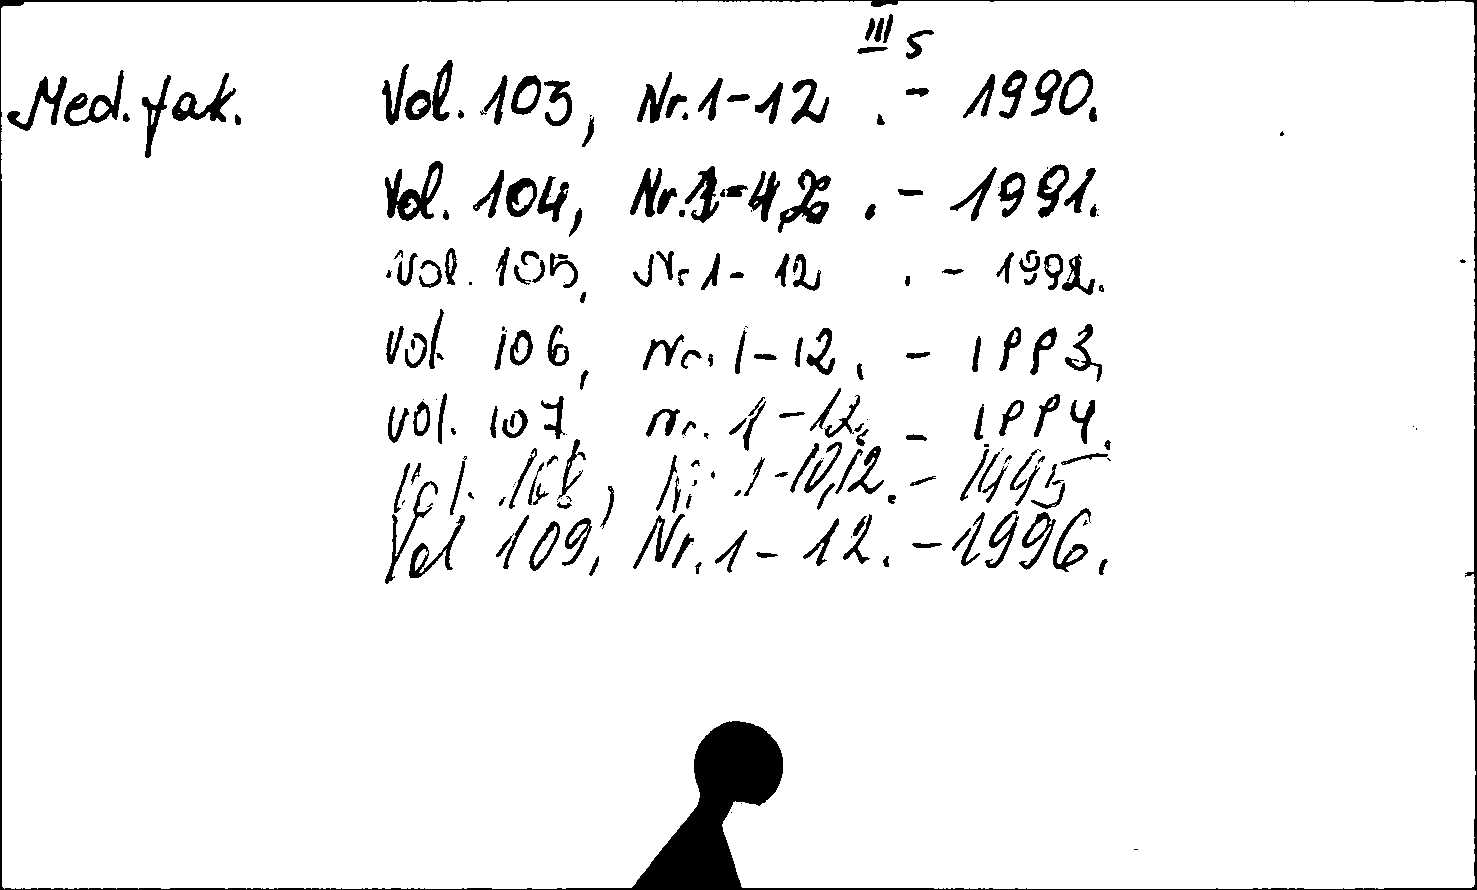 III 5
Med. fak. Vol. 103, Nr. 1-12 . - 1990.
Vol. 104, . - 1991.
Vol. 105, Nr 1 - 12 . - 1992.
Vol 106, Nr. 1 - 12. - 1993,
Vol. 107, Nr. 1 - 12. - 1994.
Vol. 108, Nr. 1-10,12. - 1995
Vol 109, Nr. 1 - 12. - 1996.